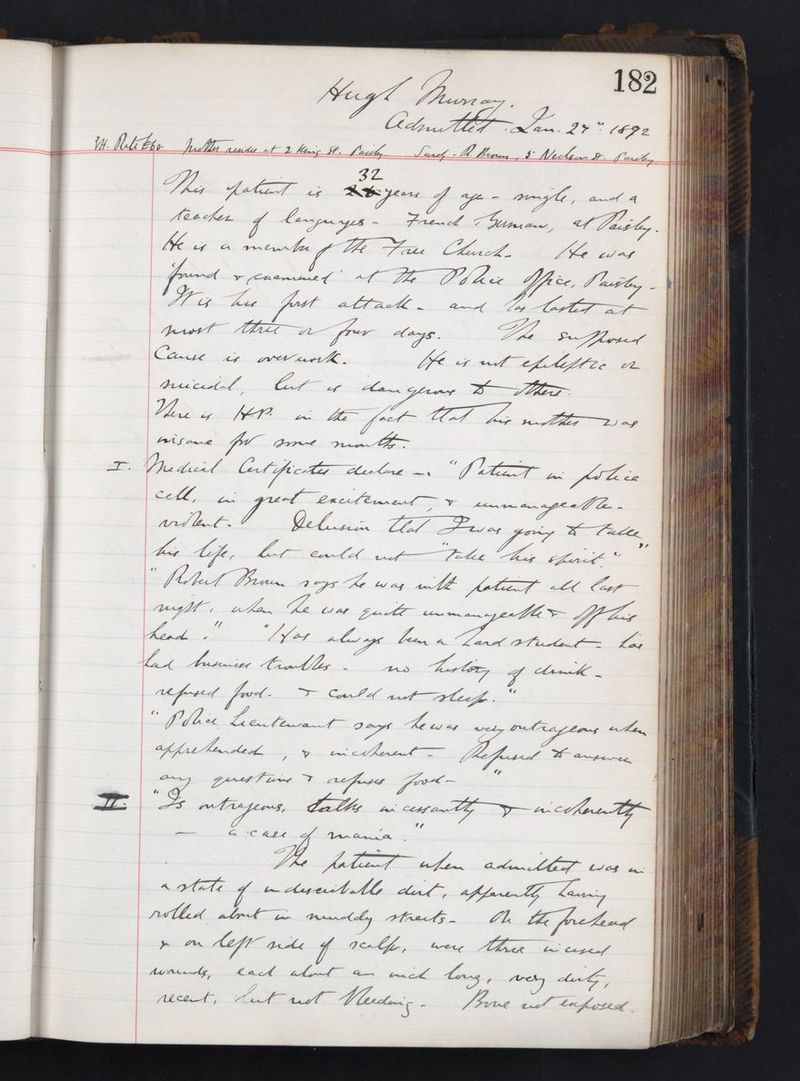 182
Hugh Murray.
Admitted. Jan. 27th. 1892
Rate £60. Mother resides at 2 King St. Paisley Surety - R. Brown, 5 St. Paisley
32
This patient is years of age - single, and a
teacher of languages - French & German, at Paisley.
He is a member of the Free Church. He was
'found & examined' at the Police Office, Paisley -
It is his first attack - and has lasted at
most three or four days. The supposed
Cause is overwork. He is not epileptic or
suicidal, but is dangerous to others.
There is H.P. in the fact that his mother was
insane for some months.
I. Medical Certificates declare -. "Patient in police
cell, in great excitement, & unmanageable -
violent. Delusion that I was going to take
his life, but could not "take his spirit"."
"Robert Brown says he was with patient all last
night, when he was quite unmanageable & off his
head." "Has always been a hard student - has
had business troubles - no history of drink -
refused food - & could not sleep."
"Police Lieutenant says he was very outrageous when
apprehended, & incoherent - Refused to answer
any questions & refuses food - "
II. "Is outrageous, talks incessantly & incoherently
- a case of mania."
The patient when admitted was in
a state of indescribable dirt, apparently having
rolled about in muddy streets - On the forehead
& on left side of scalp, were three incised
wounds, each about an inch long, very dirty,
recent, but not bleeding - Bone not exposed.